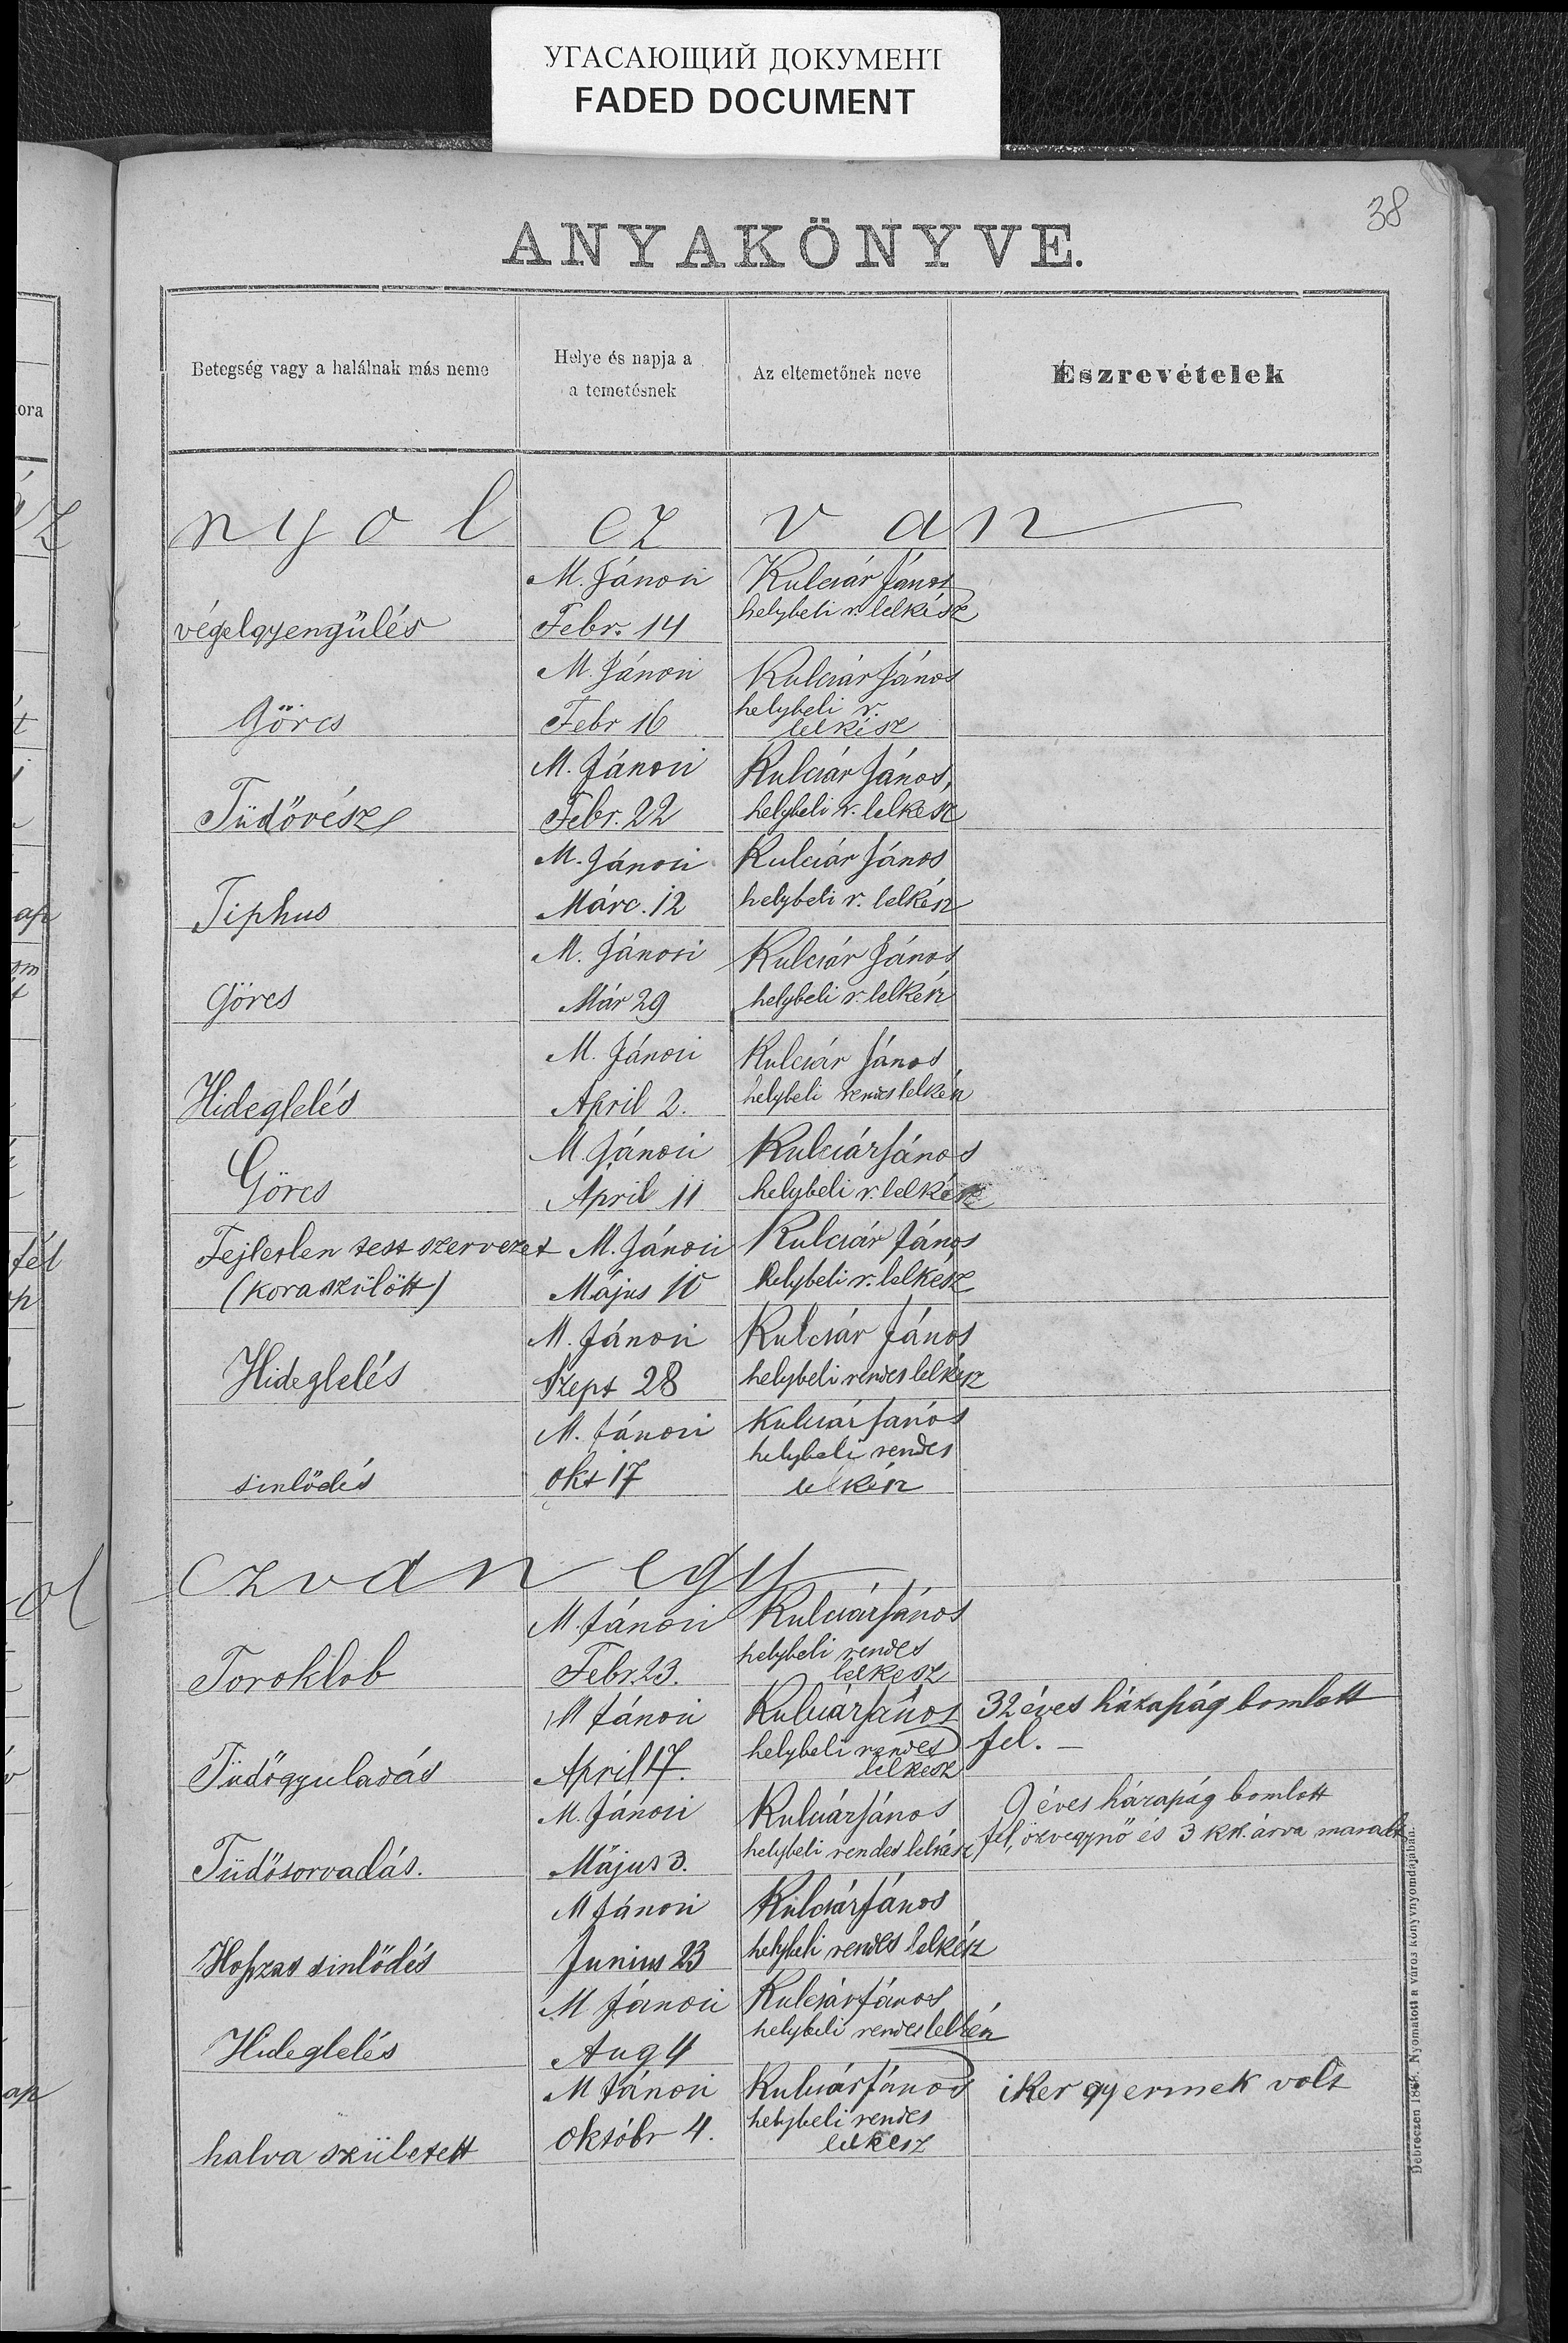 УГАСАЮЩИЙ ДОКУМЕНТ
FADED DOCUMENT
38
ANYAKÖNYVE.
Betegség vagy a halálnak más neme
Helye és napja a
a temetésnek
Az eltemetőnek neve
Észrevételek
ora
nyol cz van
M. Jánosi Kulcsár János
végelgyengülés Febr. 14 helybeli r. lelkész
M. Jánosi Kulcsár János
Görcs Febr 16 helybeli r.
lelkész
M. Jánosi Kulcsár János,
Tüdővész Febr. 22 helybeli r. lelkész
M. Jánosi Kulcsár János
Tiphus Márc. 12 helybeli r. lelkész
M. Jánosi Kulcsár János
Görcs Már 29 helybeli r. lelkész
M. Jánosi Kulcsár János
Hideglelés April 2. helybeli rendes lelkész
M. Jánosi Kulcsár János
Görcs April 11 helybeli r. lelkész
Fejletlen test szervezet M. Jánosi Kulcsár János
(koraszülött) Május 10 helybeli r. lelkész
M. Jánosi Kulcsár János
Hideglelés Szept 28 helybeli rendes lelkész
M. Jánosi Kulcsár János
helybeli rendes
sinlődés okt 17 lelkész
czvan egy
M. Jánosi Kulcsár János
Toroklob Febr. 23. helybeli rendes
lelkész
M Jánosi Kulcsár János 32 éves házaság bomlott
Tüdőgyuladás April 17. helybeli rendes fel. —
lelkész
M. Jánosi Kulcsár János 9 éves házaság bomlott
Tüdősorvadás. Május 3. helybeli rendes lelkész fel, özvegynő és 3 kk. árva maradt
M Jánosi Kulcsár János
Hoszas sinlődés Junius 23 helybeli rendes lelkész
M Jánosi Kulcsár János
Hideglelés Aug 4 helybeli rendes lelkész
M Jánosi Kulcsár János iker gyermek volt
halva született októbr 4. helybeli rendes
lelkész
Debreczen 1869. Nyomatott a város könyvnyomdájában.